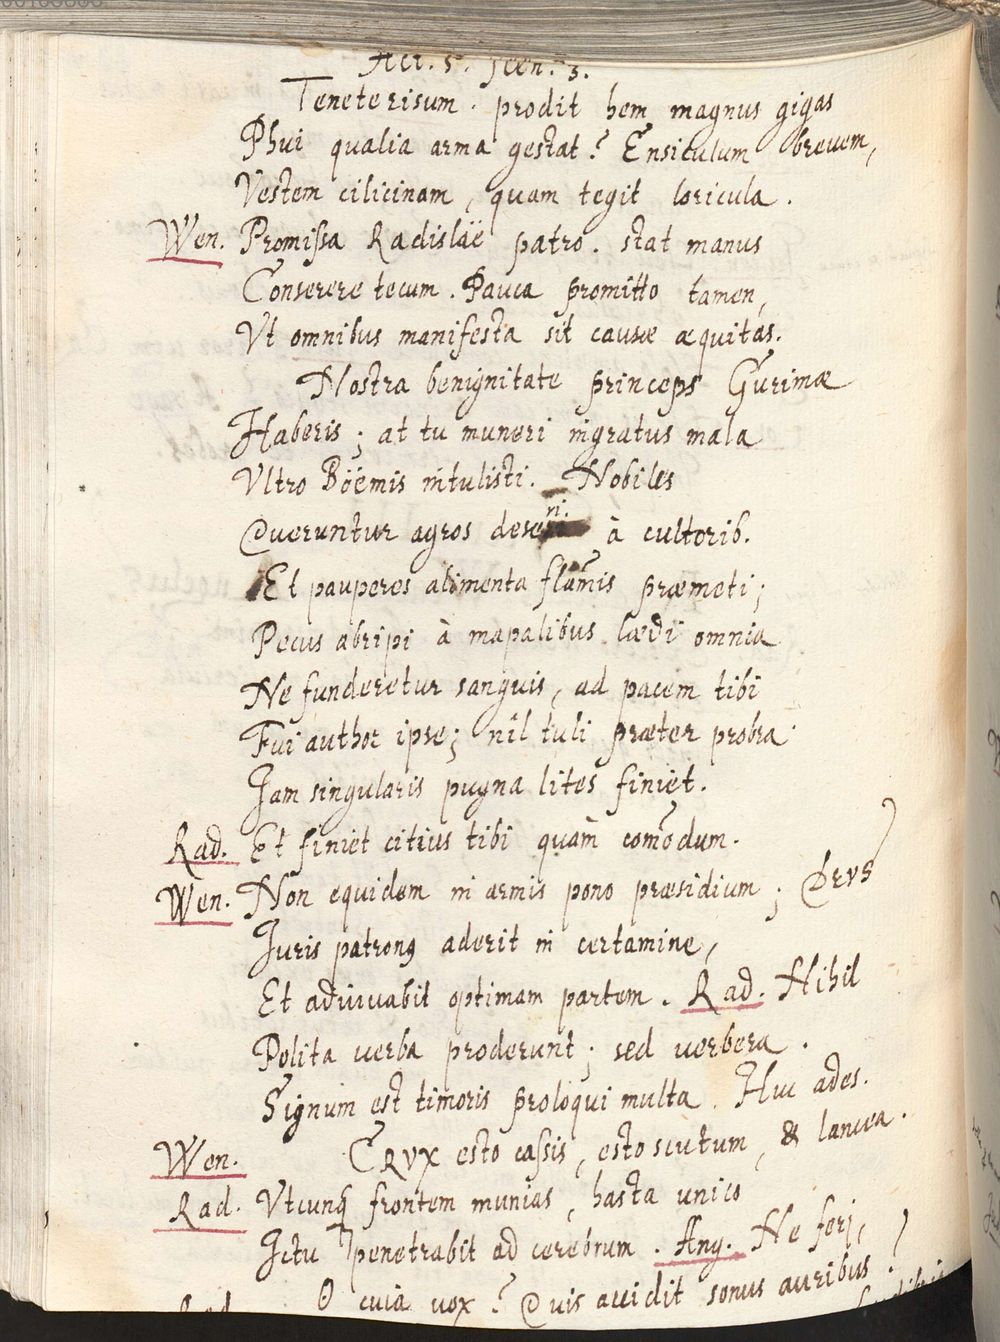 Act. 5. scen. 3.
Tenete risum. prodit hem magnus gigas
Phui qualia arma gestat? Ensiculum brevem,
Vestem cilicinam, quam tegit loricula.
Wen. Promissa Radislaë patro. stat manus
Conserere tecum. Pauca promitto tamen,
Vt omnibus manifesta sit causæ æquitas.
Nostra benignitate princeps Gurimæ
Haberis; at tu muneri ingratus mala
Vltro Böemis intulisti. Nobiles
Queruntur agros deseri à cultorib.
Et pauperes alimenta flam̃is præmeti;
Pecus abripi à mapalibus lædi omnia
Ne funderetur sanguis, ad pacem tibi
Fui author ipse; nîl tuli præter probra
Jam singularis pugna lites finiet.
Rad. Et finiet citius tibi quàm com̃odum.
Wen. Non equidem in armis pono præsidium; Deus
Juris patronꝰ aderit in certamine,
Et adiuvabit optimam partem. Rad. Nihil
Polita verba proderunt; sed verbera.
Signum est timoris proloqui multa. Huc ades.
Wen. CRVX esto cassis, esto scutum, & lancea.
Rad. Vtcunq frontem munias, hasta unico
Ictu penetrabit ad cerebrum. Ang. Ne ferj,
Rad. O cuia vox? Quis accidit sonus auribus?